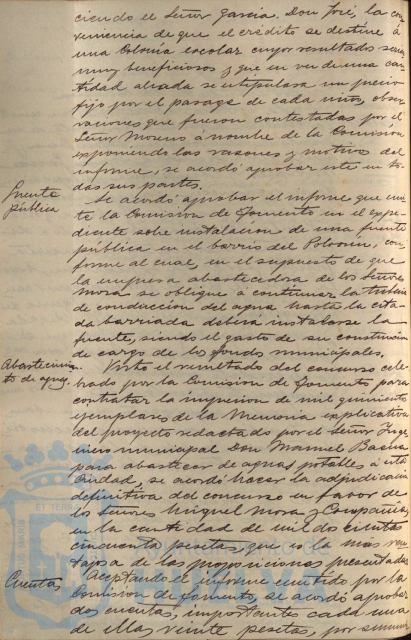 ciendo el Señor García. Don José, la con
veniencia de que el crédito se destine á
una Colonia escolar cuyos resultados son
muy beneficiosos y que en vez de una can
tidad alzada se estipulara un precio
fijo por el pasage de cada niño, obser
vaciones que fueron contestadas por el
Señor Moreno á nombre de la Comisión
exponiendo las razones y motivos del
informe, se acordó aprobar este en to
das sus partes.
Fuente
pública
Se acordó aprobar el informe que emi
te la Comisión de Fomento en el expe
diente sobre instalacion de una fuente
pública en el barrio del Polvorin, con
forme al cual, en el supuesto de que
la empresa abastecedora de los Señores
Mora se oblique á continuar la tubería
de conducción del agua hasta la cita
da barriada deberá instalarse la
fuente, siendo el gasto de su construccion
de cargo de los fondos municipales.
Abastecimien
to de aguas
Visto el resultado del concurso cele
brado por la Comisión de Fomento para
contratar la impresion de mil quinientos
ejemplares de la Memoria explicativa
del proyecto redactado por el Señor Inge
niero municipal Don Manuel
para abastecer de aguas potables á esta
Ciudad, se acordó hacer la adjudicación
definitiva del concurso en favor de
los Señores Miguel Mora y Compañía,
en la cantidad de mil doscientas
cincuenta pesetas, que es la mas ven
tajosa de las proposiciones presentadas.
Cuentas
Aceptando el informe emitido por la
Comision de Fomento, se acordó aprobar
dos cuentas, importantes cada una
de ellas veinte pesetas, por